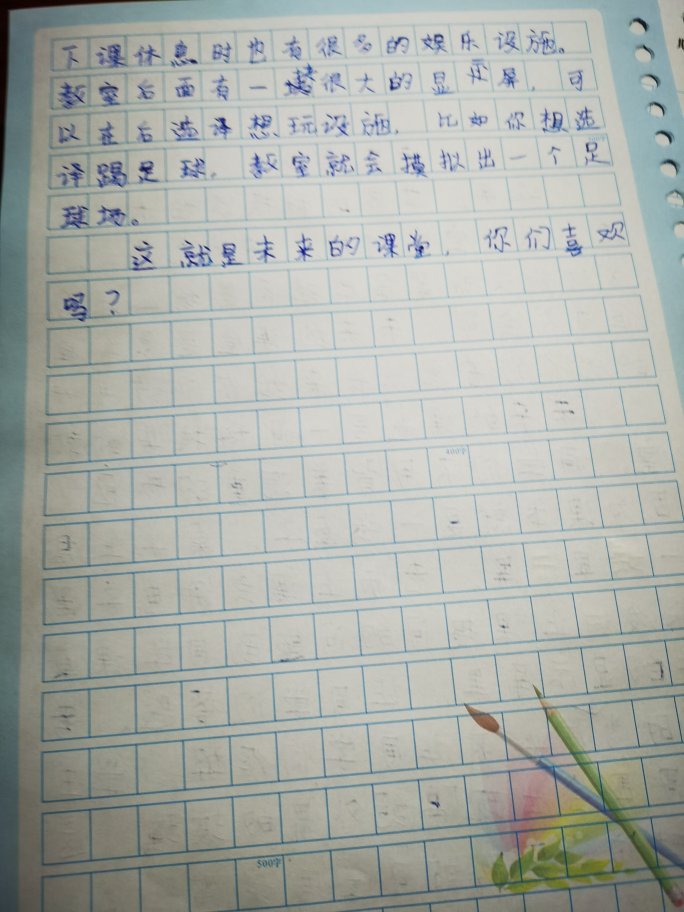 下课休息时也有很多的娱乐设施。
教室后面有一堵很大的显示屏，可
以在后选译想玩设施，比如你想选
译踢足球，教室就会摸拟出一个足
球场。
这就是未来的课堂，你们喜欢
吗？
400字
500字